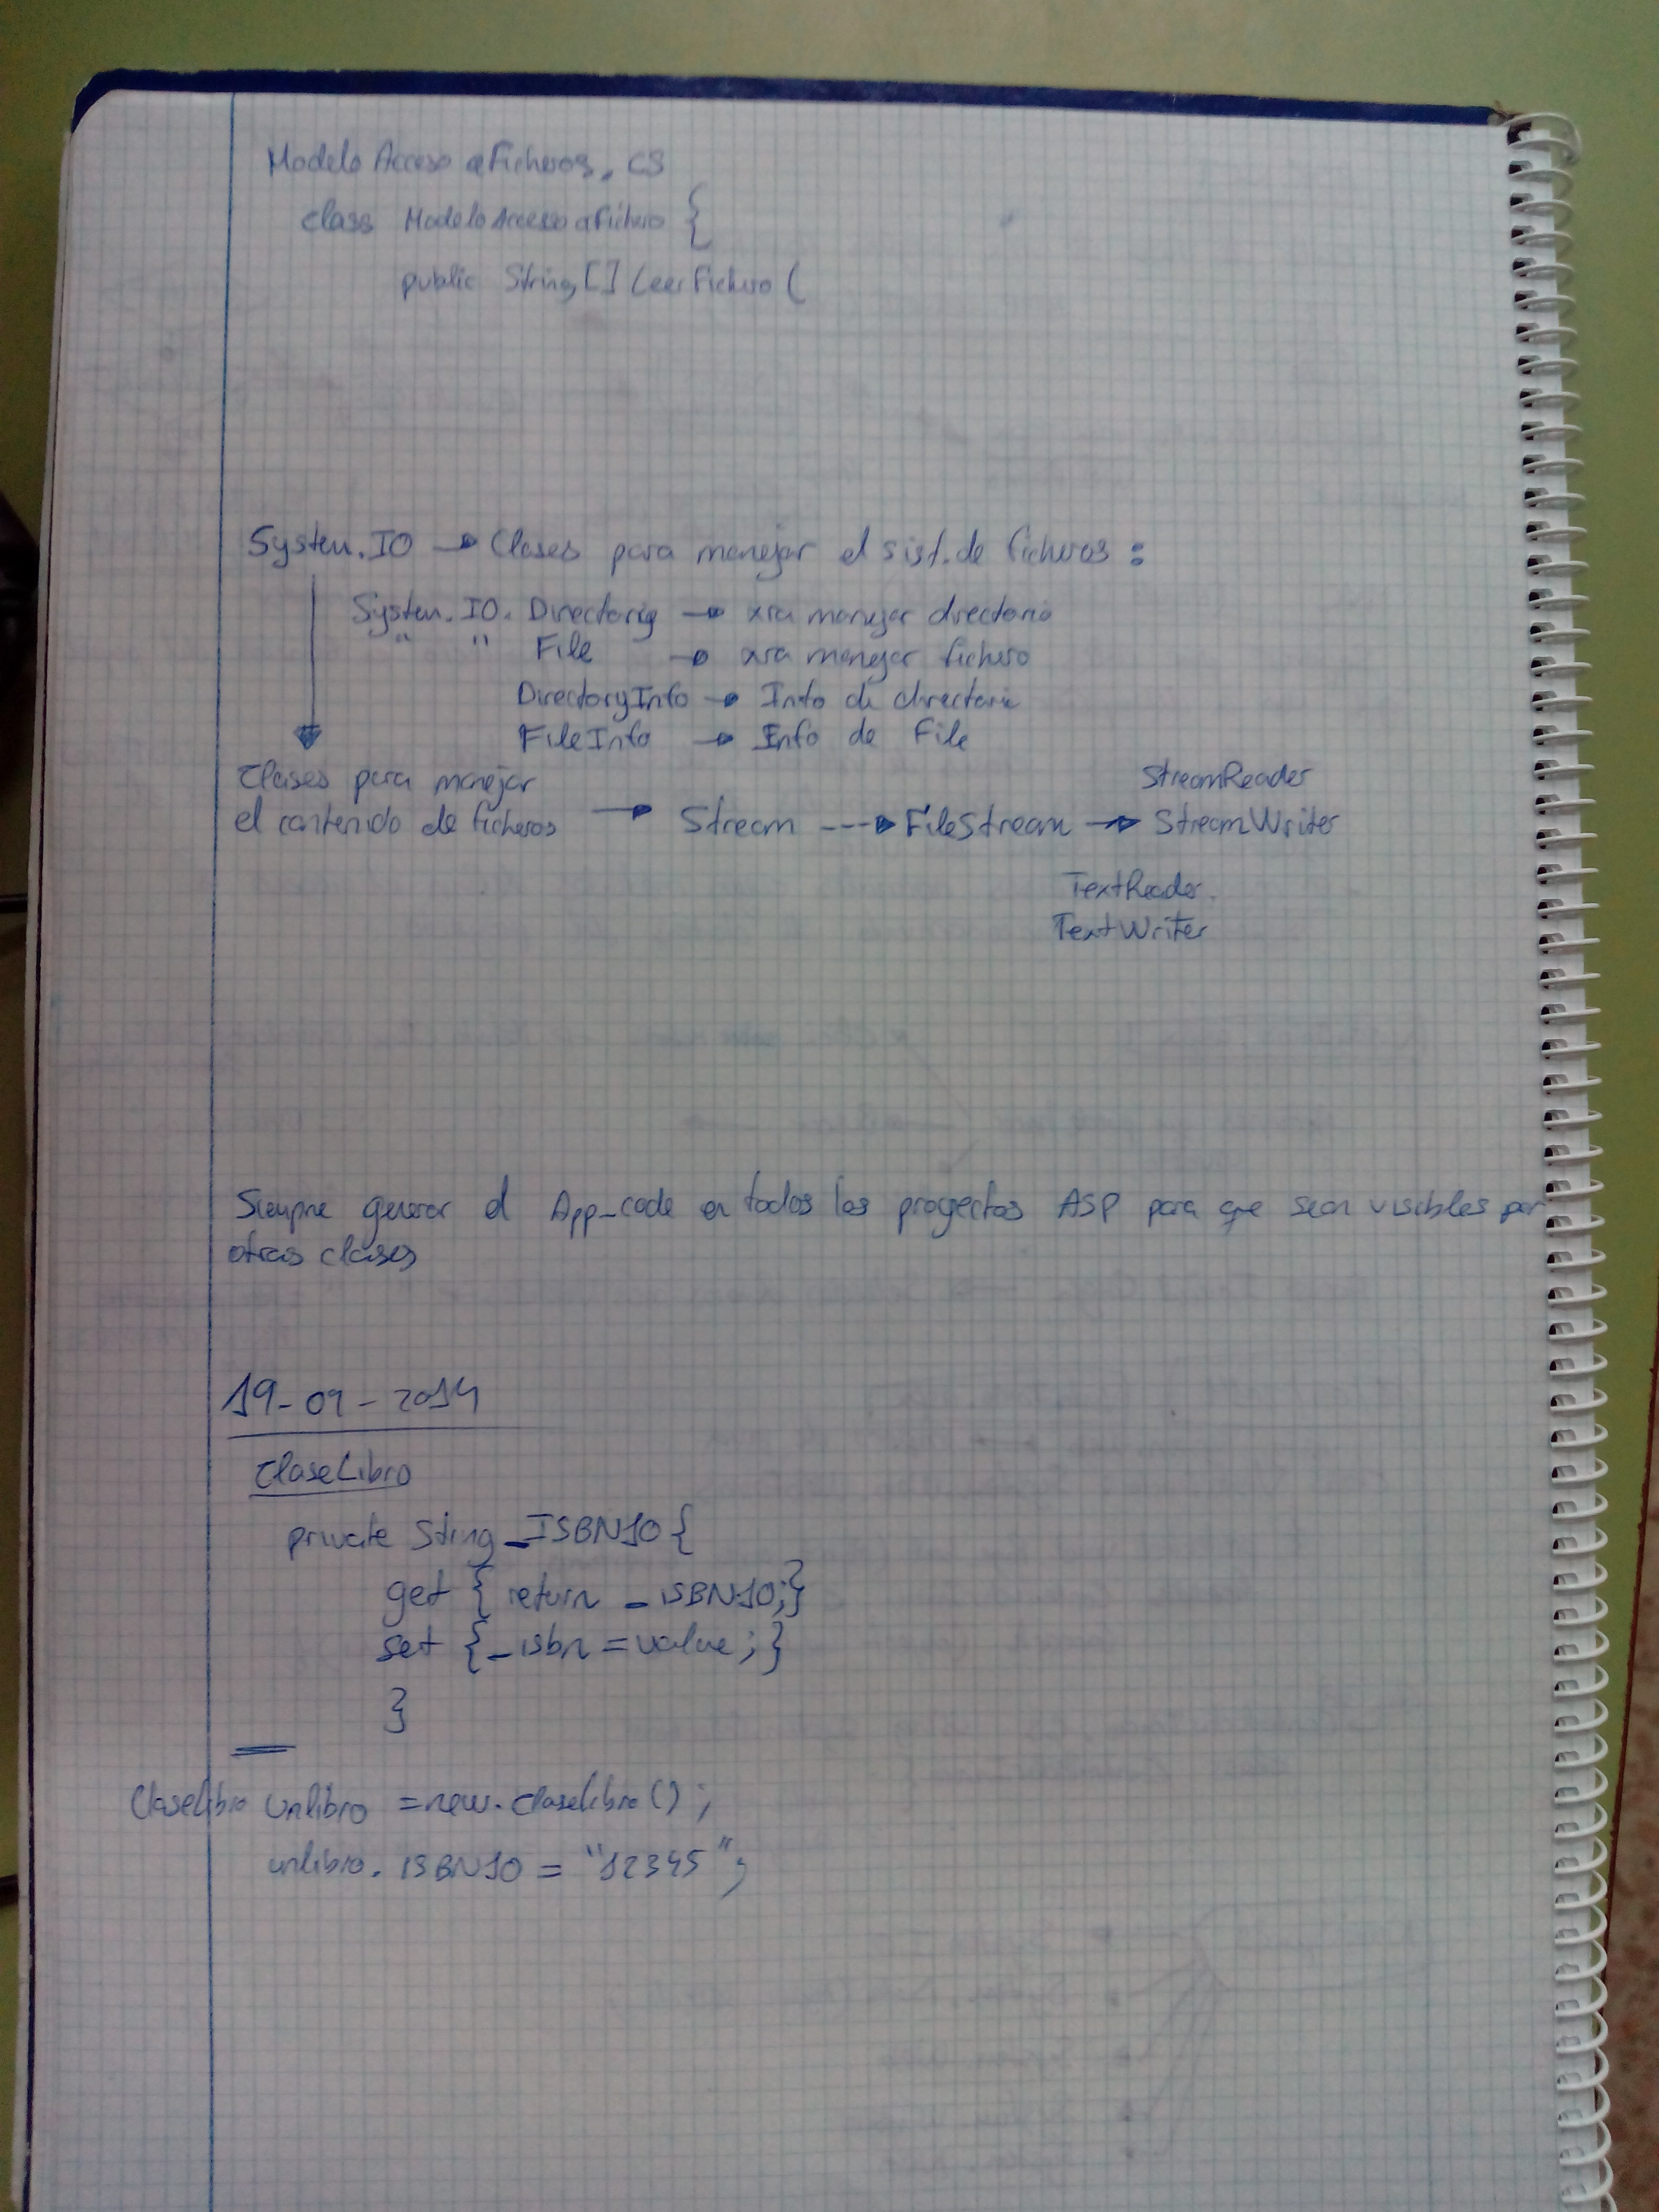 Modelo Acceso a Ficheros. CS
class Modelo Acceso a Fichero {
public String[] Leer Fichero (
System.IO → Clases para manejar el sist. de ficheros :
System.IO. Directorig → xra manejar directorio
" " File → xra manejar fichero
DirectoryInfo → Info de directorio
FileInfo → Info de File
Clases para manejar
el contenido de ficheros → Stream ---→ FileStream → StreamWriter
StreamReader
TextReader
TextWriter
Siempre generar el App_code en todos los proyectos ASP para que sean visibles por
otras clases
19-09-2014
ClaseLibro
private String _ISBN10 {
get { return _ISBN10;}
set {_isbn = value; }
}
ClaseLibro unlibro = new. claseLibro();
unlibro. ISBN10 = "12345";